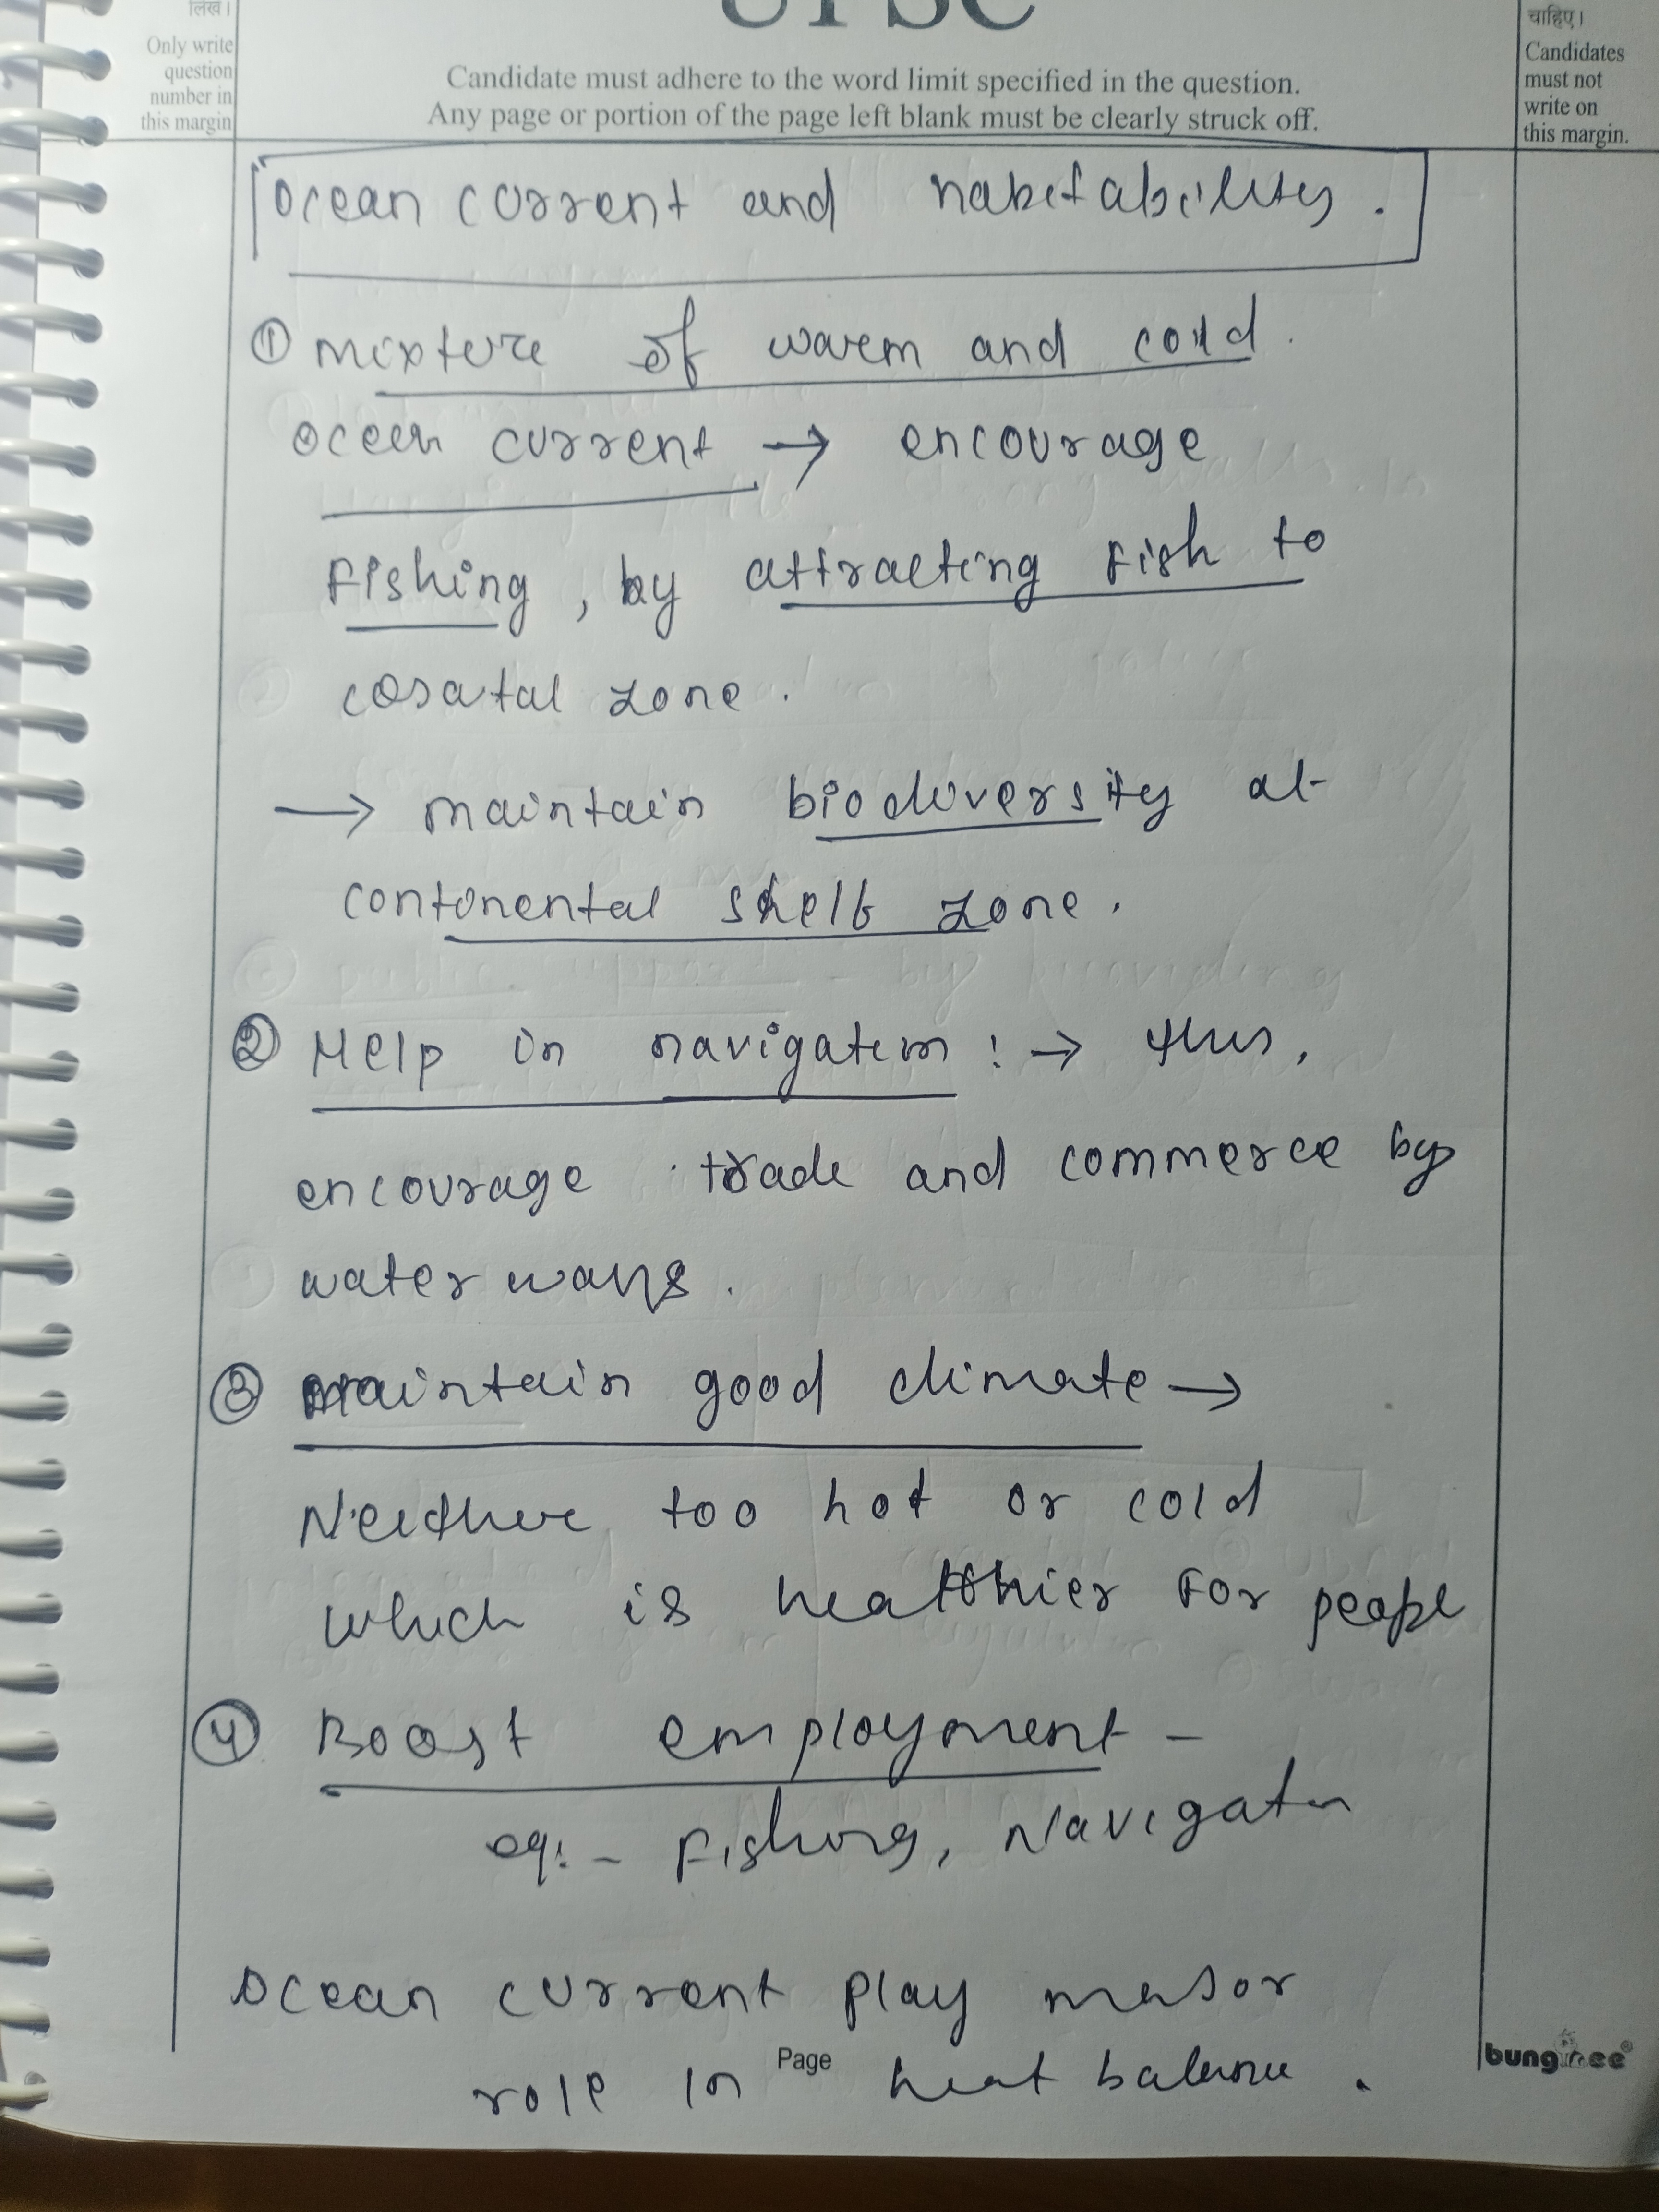 लिखें।
Only write
question
number in
this margin
UPSC
Candidate must adhere to the word limit specified in the question.
Any page or portion of the page left blank must be clearly struck off.
चाहिए।
Candidates
must not
write on
this margin.
ocean current and habitability.
① mixture of warm and cold.
ocean current → encourage
Fishing, by attracting fish to
cosatal zone.
→ maintain biodiversity at
continental shelf zone.
② Help in navigation : → thus,
encourage trade and commerce by
water ways.
③ maintain good climate →
Neither too hot or cold
which is healthier for people
④ Boost employment -
eg:- Fishing, Navigation
Ocean current play major
role in heat balance.
Page
bungree®